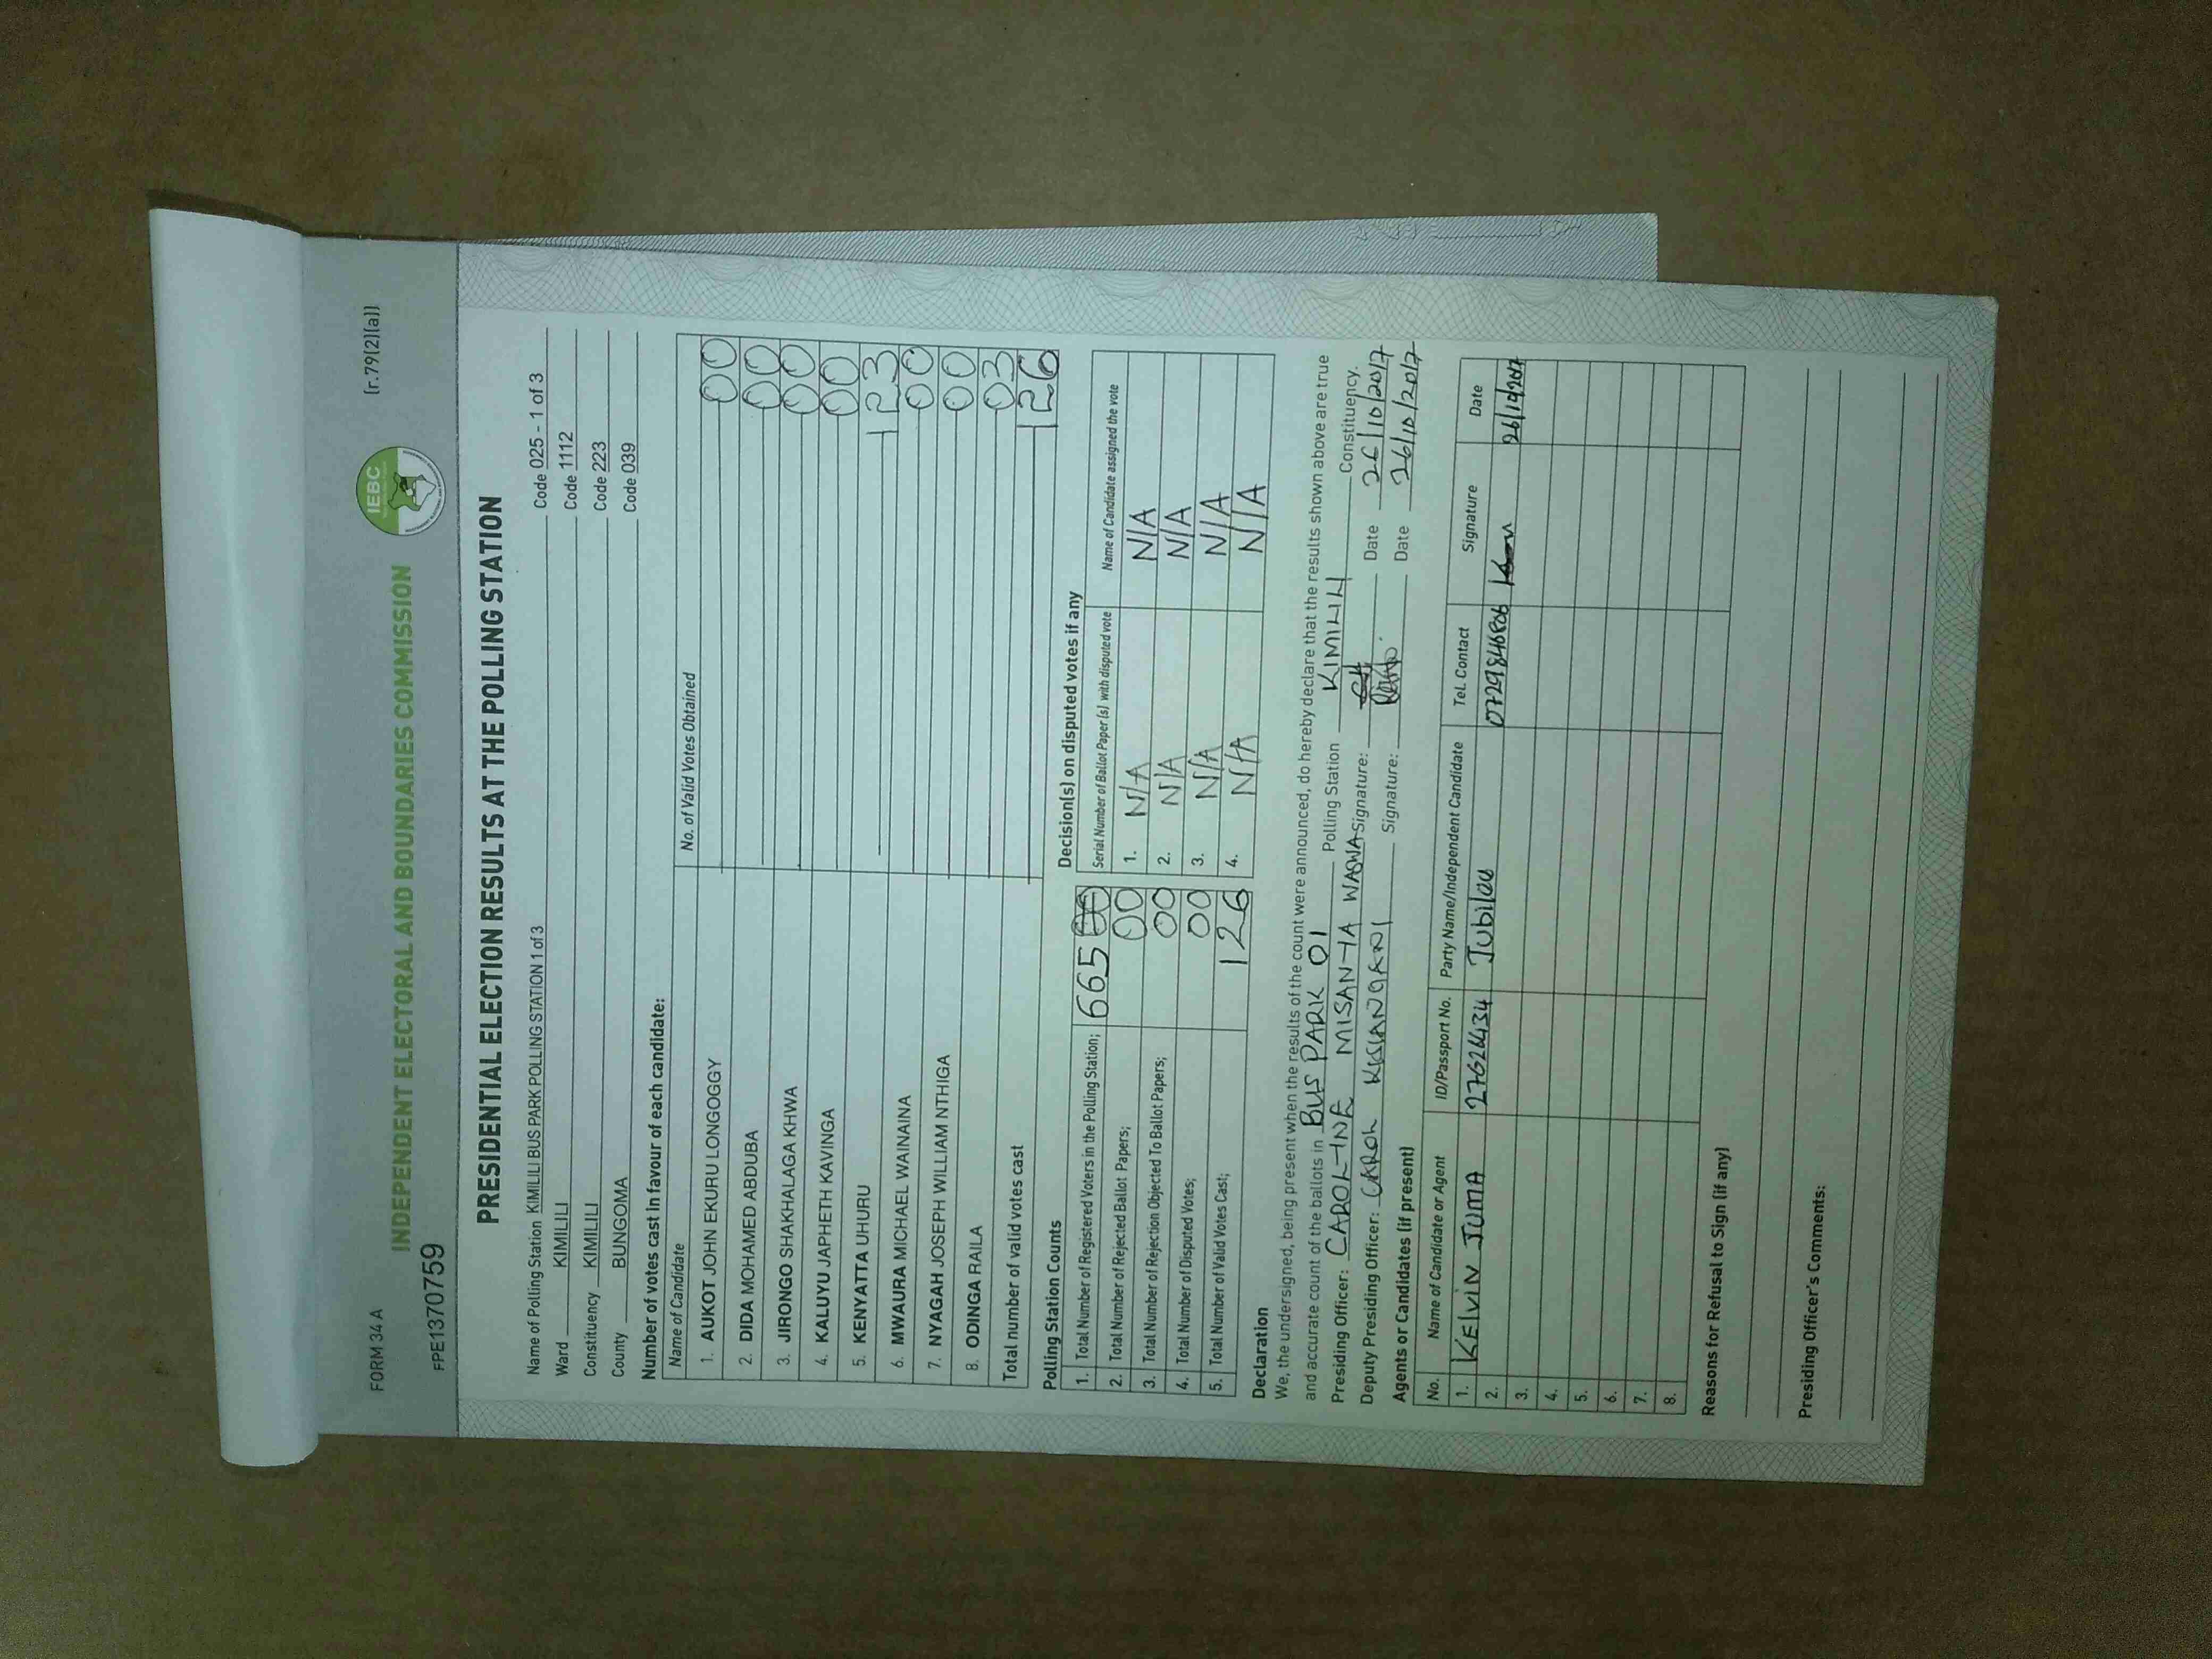 FORM 34 A
(r.79(2)(a))
IEBC
INDEPENDENT ELECTORAL AND BOUNDARIES COMMISSION
FPE1370759
PRESIDENTIAL ELECTION RESULTS AT THE POLLING STATION
Name of Polling Station KIMILILI BUS PARK POLLING STATION 1 of 3 Code 025 - 1 of 3
Ward KIMILILI Code 1112
Constituency KIMILILI Code 223
County BUNGOMA Code 039
Number of votes cast in favour of each candidate:
Name of Candidate No. of Valid Votes Obtained
1. AUKOT JOHN EKURU LONGOGGY 00
2. DIDA MOHAMED ABDUBA 00
3. JIRONGO SHAKHALAGA KHWA 00
4. KALUYU JAPHETH KAVINGA 00
5. KENYATTA UHURU 123
6. MWAURA MICHAEL WAINAINA 00
7. NYAGAH JOSEPH WILLIAM NTHIGA 00
8. ODINGA RAILA 03
Total number of valid votes cast 126
Polling Station Counts
1. Total Number of Registered Voters in the Polling Station; 665
2. Total Number of Rejected Ballot Papers; 00
3. Total Number of Rejection Objected To Ballot Papers; 00
4. Total Number of Disputed Votes; 00
5. Total Number of Valid Votes Cast; 126
Decision(s) on disputed votes if any
Serial Number of Ballot Paper (s) with disputed vote Name of Candidate assigned the vote
1. N/A N/A
2. N/A N/A
3. N/A N/A
4. N/A N/A
Declaration
We, the undersigned, being present when the results of the count were announced, do hereby declare that the results shown above are true
and accurate count of the ballots in BUS PARK 01 Polling Station KIMILILI Constituency.
Presiding Officer: CAROLINE MISANYA WASWA Signature: Date 26/10/2017
Deputy Presiding Officer: CAROL KISIANGANI Signature: Date 26/10/2017
Agents or Candidates (if present)
No. Name of Candidate or Agent ID/Passport No. Party Name/Independent Candidate Tel. Contact Signature Date
1. KELVIN JUMA 27624434 Jubilee 0729846806 26/10/2017
2.
3.
4.
5.
6.
7.
8.
Reasons for Refusal to Sign (if any)
Presiding Officer's Comments: